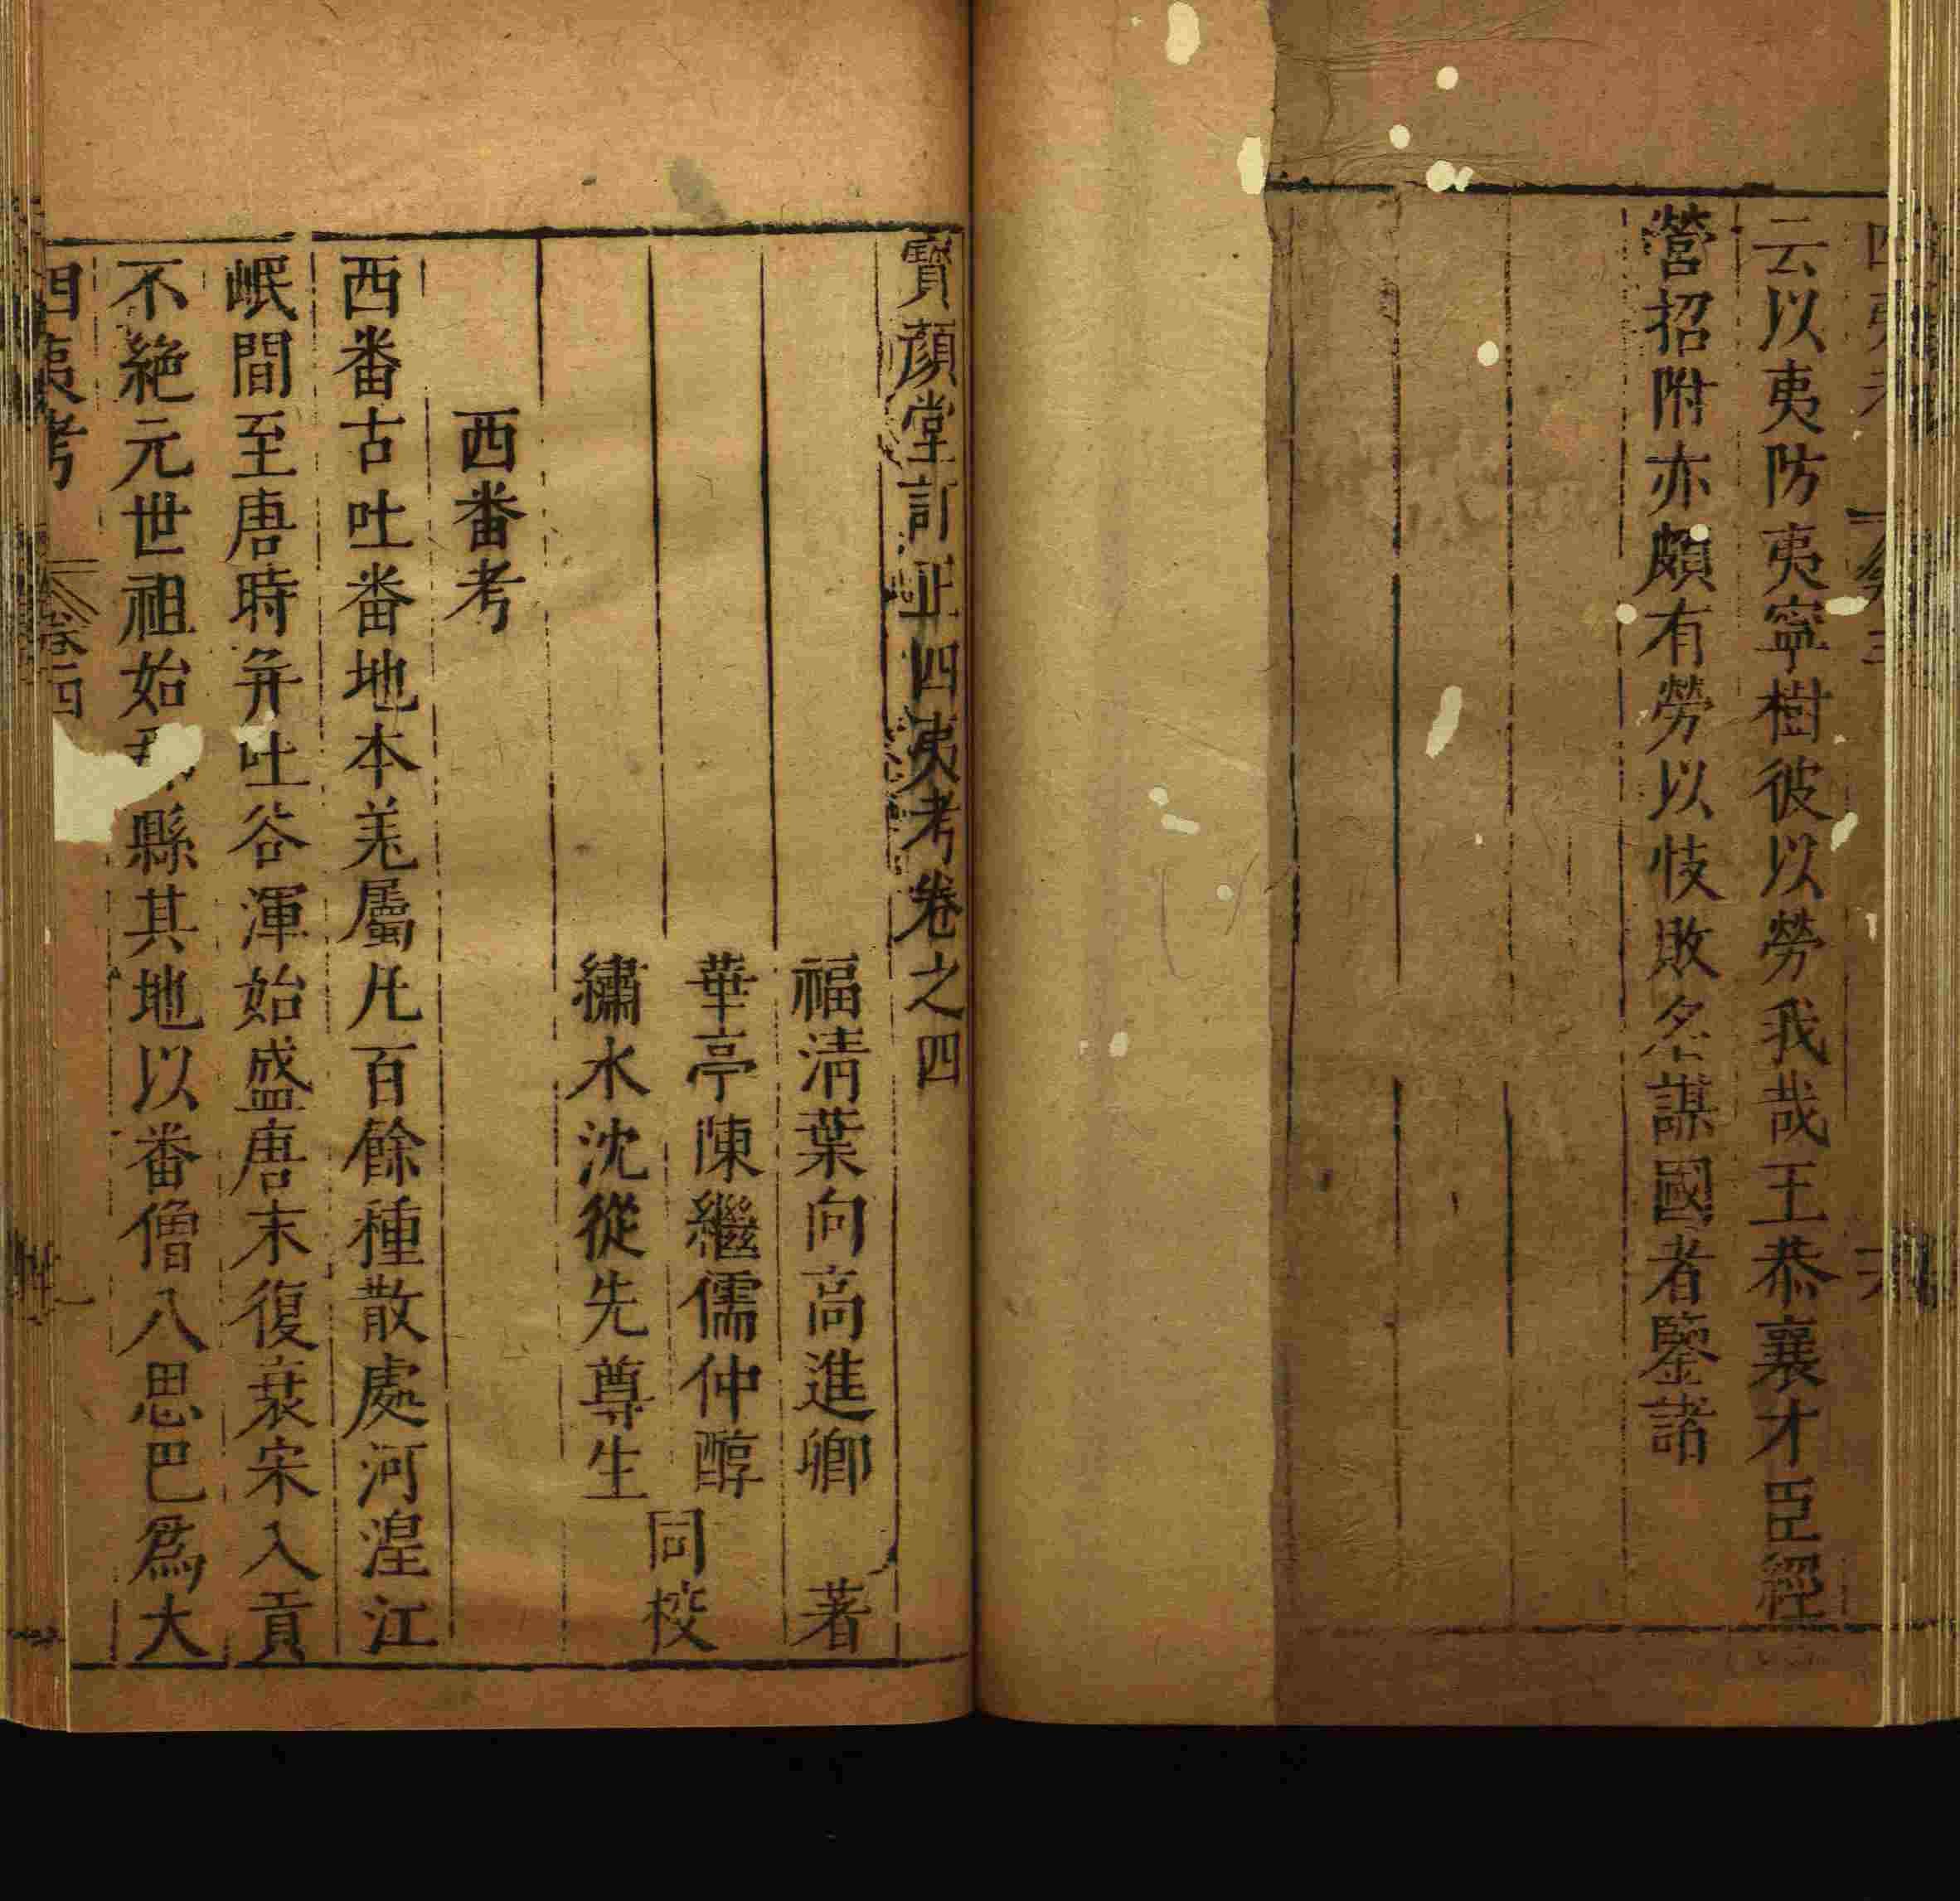 云以夷防夷寧樹彼以勞我哉王恭襄才臣經
營招附亦頗有勞以忮敗名謀國者鑒諸
寶顏堂訂正四夷考卷之四
福清葉向高進卿 著
華亭陳繼儒仲醇
同校
繡水沈從先尊生
西番考
西番古吐番地本羌屬凡百餘種散處河湟江
岷間至唐時并吐谷渾始盛唐末復衰宋入貢
不絶元世祖始 縣其地以番僧八思巴爲大
四夷考 卷四 一